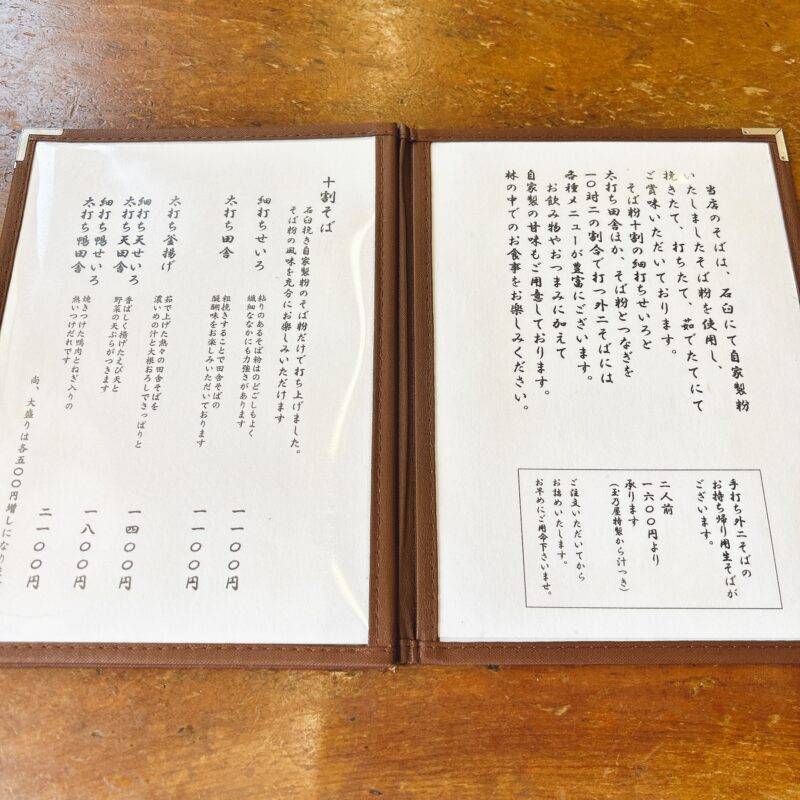 当店のそばは、石臼にて自家製粉
いたしましたそば粉を使用し、
挽きたて、打ちたて、茹でたてにて
ご賞味いただいております。
そば粉十割の細打ちせいろと
太打ち田舎ほか、そば粉とつなぎを
一〇対二の割合で打つ外二そばには
各種メニューが豊富にございます。
お飲み物やおつまみに加えて
自家製の甘味もご用意しております。
林の中でのお食事をお楽しみください。
手打ち外二そばの
お持ち帰り用生そばが
ございます。
二人前
一六〇〇円より
承ります
(玉乃屋特製から汁つき)
ご注文いただいてから
お詰めいたします。
お早めにご用命下さいませ。
十割そば
石臼挽き自家製粉のそば粉だけで打ち上げました。
そば粉の風味を充分にお楽しみいただけます
細打ちせいろ
粘りのあるそば粉はのどごしもよく
繊細ななかにも力強さがあります
一一〇〇円
太打ち田舎
粗挽きすることで田舎そばの
醍醐味をお楽しみいただいております
一一〇〇円
太打ち釜揚げ
茹で上げた熱々の田舎そばを
濃いめの汁と大根おろしでさっぱりと
一四〇〇円
細打ち天せいろ
太打ち天田舎
香ばしく揚げたえび天と
野菜の天ぷらがつきます
一八〇〇円
細打ち鴨せいろ
太打ち鴨田舎
焼きつけた鴨肉とねぎ入りの
熱いつけだれです
二一〇〇円
尚、大盛りは各五〇〇円増しになりま